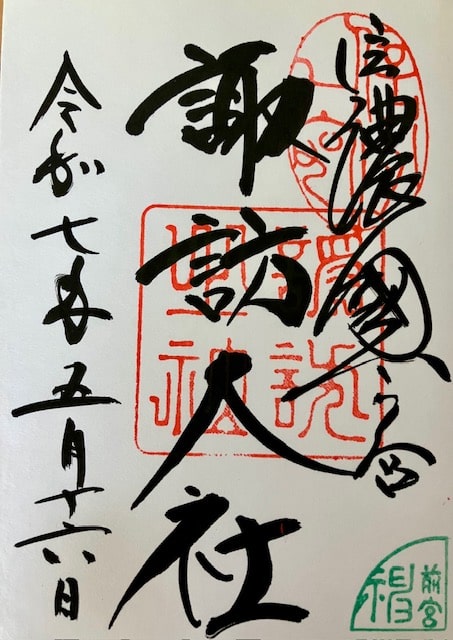 信濃國一之宮
諏訪大社
令和七年五月十六日
前宮